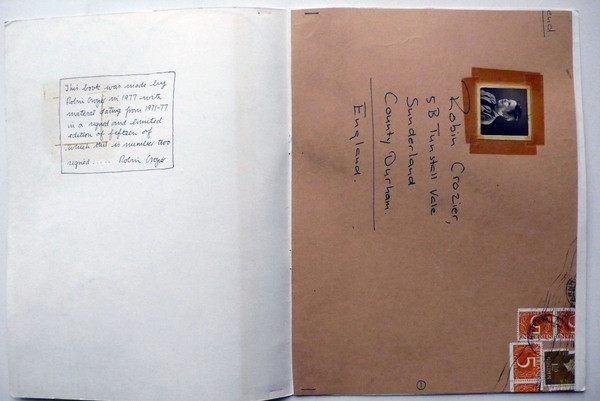 This book was made by
Robin Crozier in 1977 with
material dating from 1971-77
in a signed and limited
edition of fifteen of
which this is number two
signed .... Robin Crozier
Robin Crozier,
5B Tunstall Vale
Sunderland
County Durham.
England.
5
5